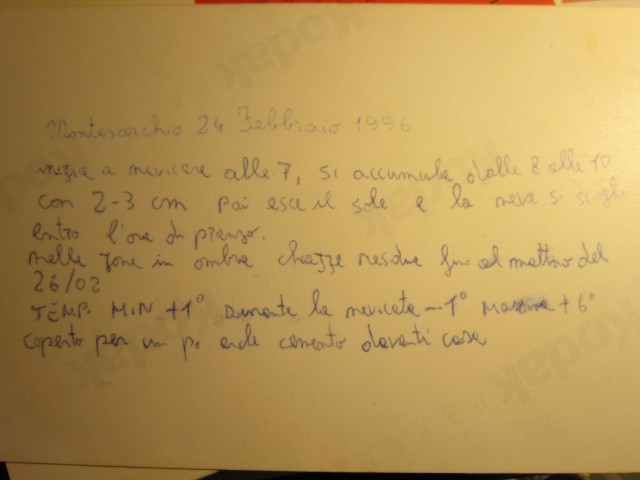 Montesarchio 24 Febbraio 1996
inizia a nevicare alle 7, si accumula dalle 8 alle 10
con 2-3 cm poi esce il sole e la neve si scioglie
entro l'ora di pranzo.
nelle zone in ombra chiazze residue fino al mattino del
26/02
TEMP. MIN +1° durante la nevicata -1° Massima +6°
coperto per un po anche cemento davanti casa
Kodak
Kodak
Kodak
Kodak